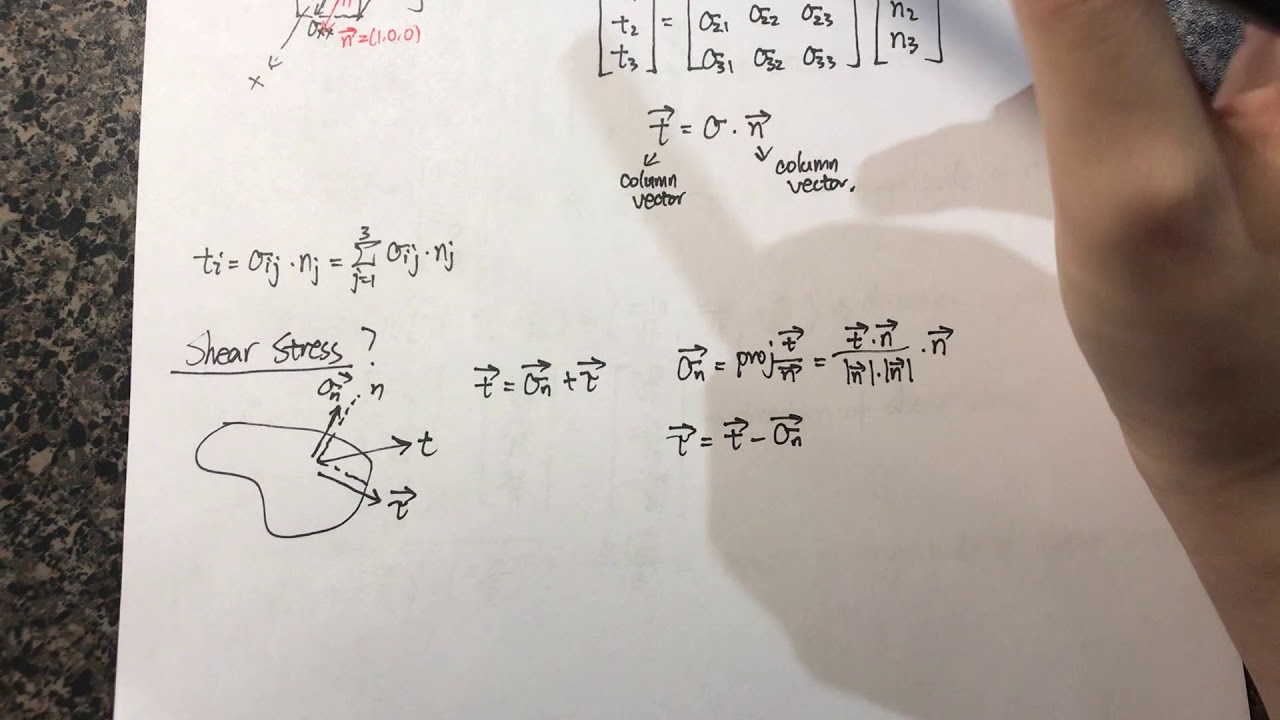 σxx n⃗=(1,0,0)
x
[t₂ t₃] = [σ₂₁ σ₂₂ σ₂₃ σ₃₁ σ₃₂ σ₃₃] [n₂ n₃]
t⃗ = σ · n⃗
column vector
column vector.
tᵢ = σᵢⱼ · nⱼ = ∑_{j=1}^{3} σᵢⱼ · nⱼ
Shear Stress ?
t⃗ = σ⃗ₙ + τ⃗
σ⃗ₙ = proj t⃗/n⃗ = (t⃗·n⃗)/(|n⃗|·|n⃗|) · n⃗
τ⃗ = t⃗ − σ⃗ₙ
σ⃗ₙ n
t
τ⃗